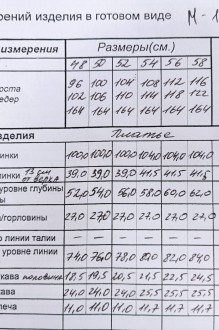 рений изделия в готовом виде М-1
измерения Размеры(см.)
48 50 52 54 56 58
оста 96 100 104 108 112 116
едер 102 106 110 114 118 122
164 164 164 164 164 164
зделия Платье
инки 100,0 100,0 100,0 104,0 104,0 104,0
инки 39,0 39,0 39,0 41,5 41,5 41,5
уровне глубины 52,0 54,0 56,0 58,0 60,0 62,0
ы
/горловины 27,0 27,0 27,0 27,0 27,0 27,0
о линии талии – – – – – –
уровне линии 74,0 76,0 78,0 80,0 82,0 84,0
кава половина 18,5 19,5 20,5 21,5 22,5 24,5
ава 24,0 24,0 24,0 25,5 25,5 25,5
леча 11,0 11,0 11,0 11,7 11,7 11,7